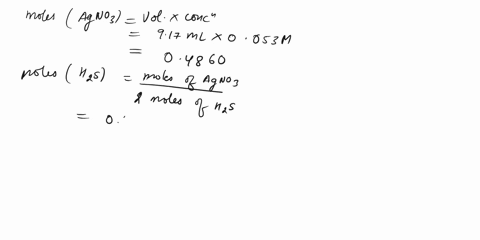 moles (AgNO3) = Vol. x concn
= 9.17 mL x 0.053M
= 0.4860
moles (H2S) = moles of AgNO3
2 moles of H2S
= 0.